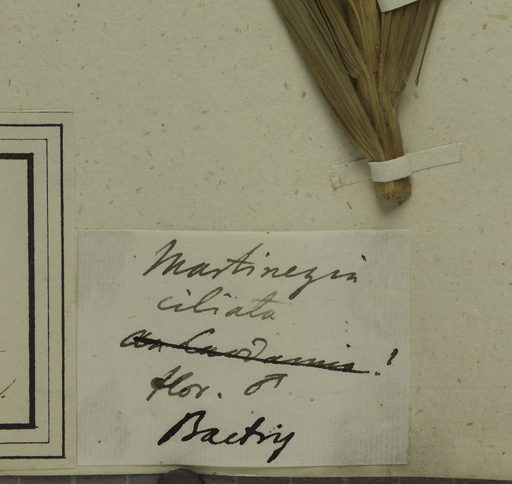 Martinezia
ciliata
flor. ♂
Bactris